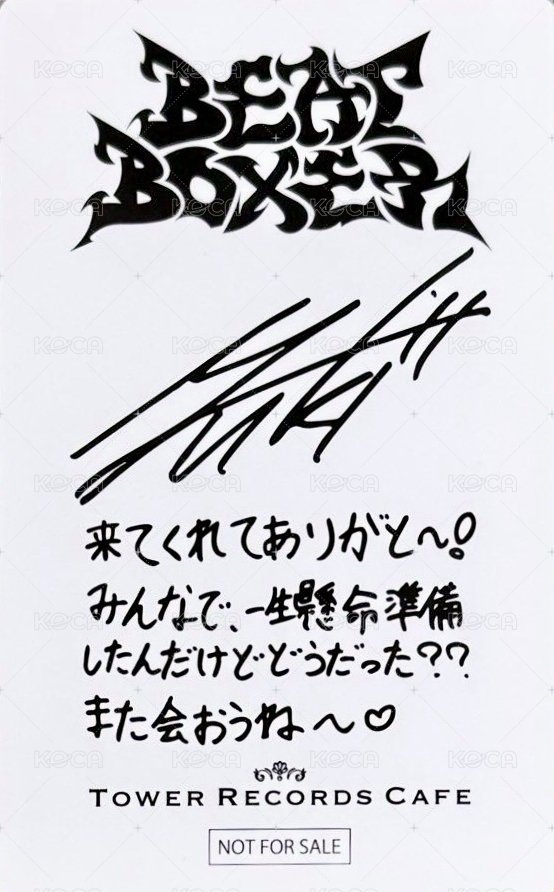 BEAT
BOXER
YUKI
来てくれてありがと〜!
みんなで、一生懸命準備
したんだけどどうだった??
また会おうね〜♡
TOWER RECORDS CAFE
NOT FOR SALE